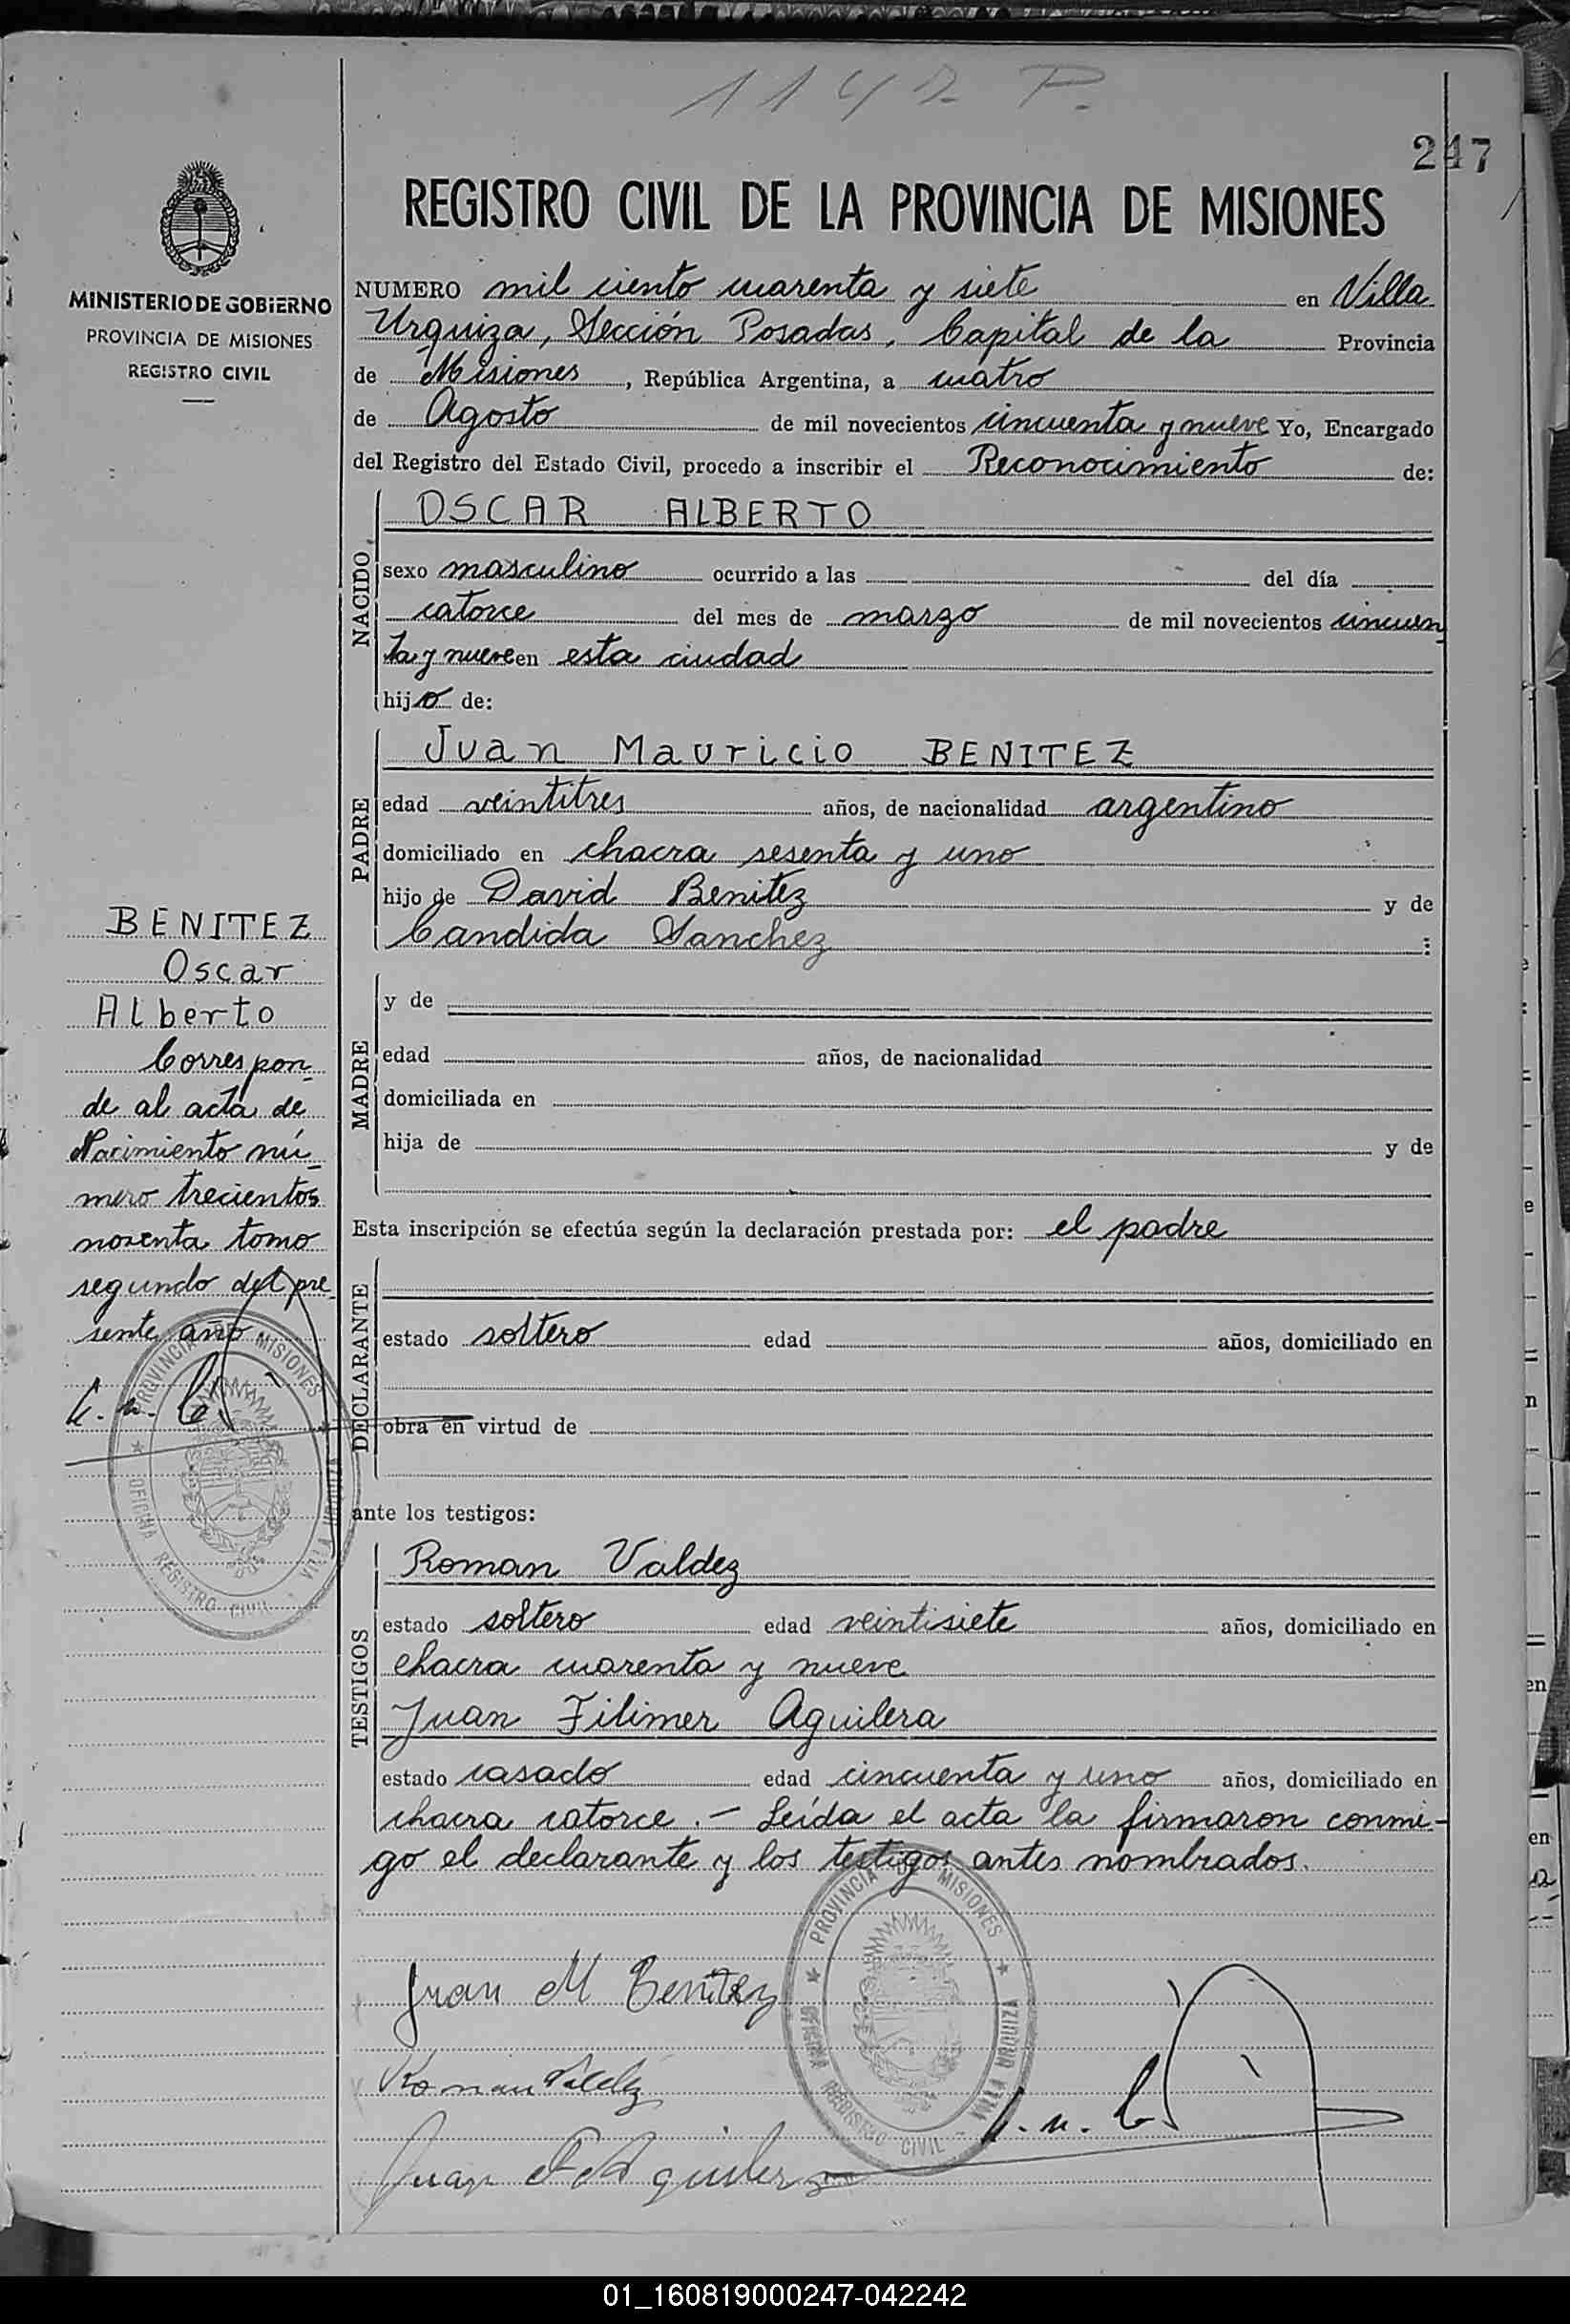 1147 P.
247
REGISTRO CIVIL DE LA PROVINCIA DE MISIONES
MINISTERIO DE GOBIERNO
PROVINCIA DE MISIONES
REGISTRO CIVIL
NUMERO mil ciento cuarenta y siete en Villa
Urquiza, Sección Posadas, Capital de la Provincia
de Misiones, República Argentina, a cuatro
de Agosto de mil novecientos cincuenta y nueve Yo, Encargado
del Registro del Estado Civil, procedo a inscribir el Reconocimiento de:
NACIDO
OSCAR ALBERTO
sexo masculino ocurrido a las del día
catorce del mes de marzo de mil novecientos cincuen
ta y nueve en esta ciudad
hijo de:
PADRE
Juan Mauricio BENITEZ
edad veintitres años, de nacionalidad argentino
domiciliado en chacra sesenta y uno
hijo de David Benitez y de
Candida Sanchez :
MADRE
y de
edad años, de nacionalidad
domiciliada en
hija de y de
BENITEZ
Oscar
Alberto
Correspon_
de al acta de
Nacimiento nú_
mero trecientos
noventa tomo
segundo del pre_
sente año
Esta inscripción se efectúa según la declaración prestada por: el padre
DECLARANTE
estado soltero edad años, domiciliado en
obra en virtud de
PROVINCIA DE MISIONES
OFICINA REGISTRO CIVIL - VILLA URQUIZA
ante los testigos:
TESTIGOS
Roman Valdez
estado soltero edad veintisiete años, domiciliado en
chacra cuarenta y nueve
Juan Filimer Aguilera
estado casado edad cincuenta y uno años, domiciliado en
chacra catorce. - Leída el acta la firmaron conmi-
go el declarante y los testigos antes nombrados.
PROVINCIA DE MISIONES
OFICINA REGISTRO CIVIL - VILLA URQUIZA
Juan M Benitez
Roman Valdez
Juan F Aguilera
01_160819000247-042242